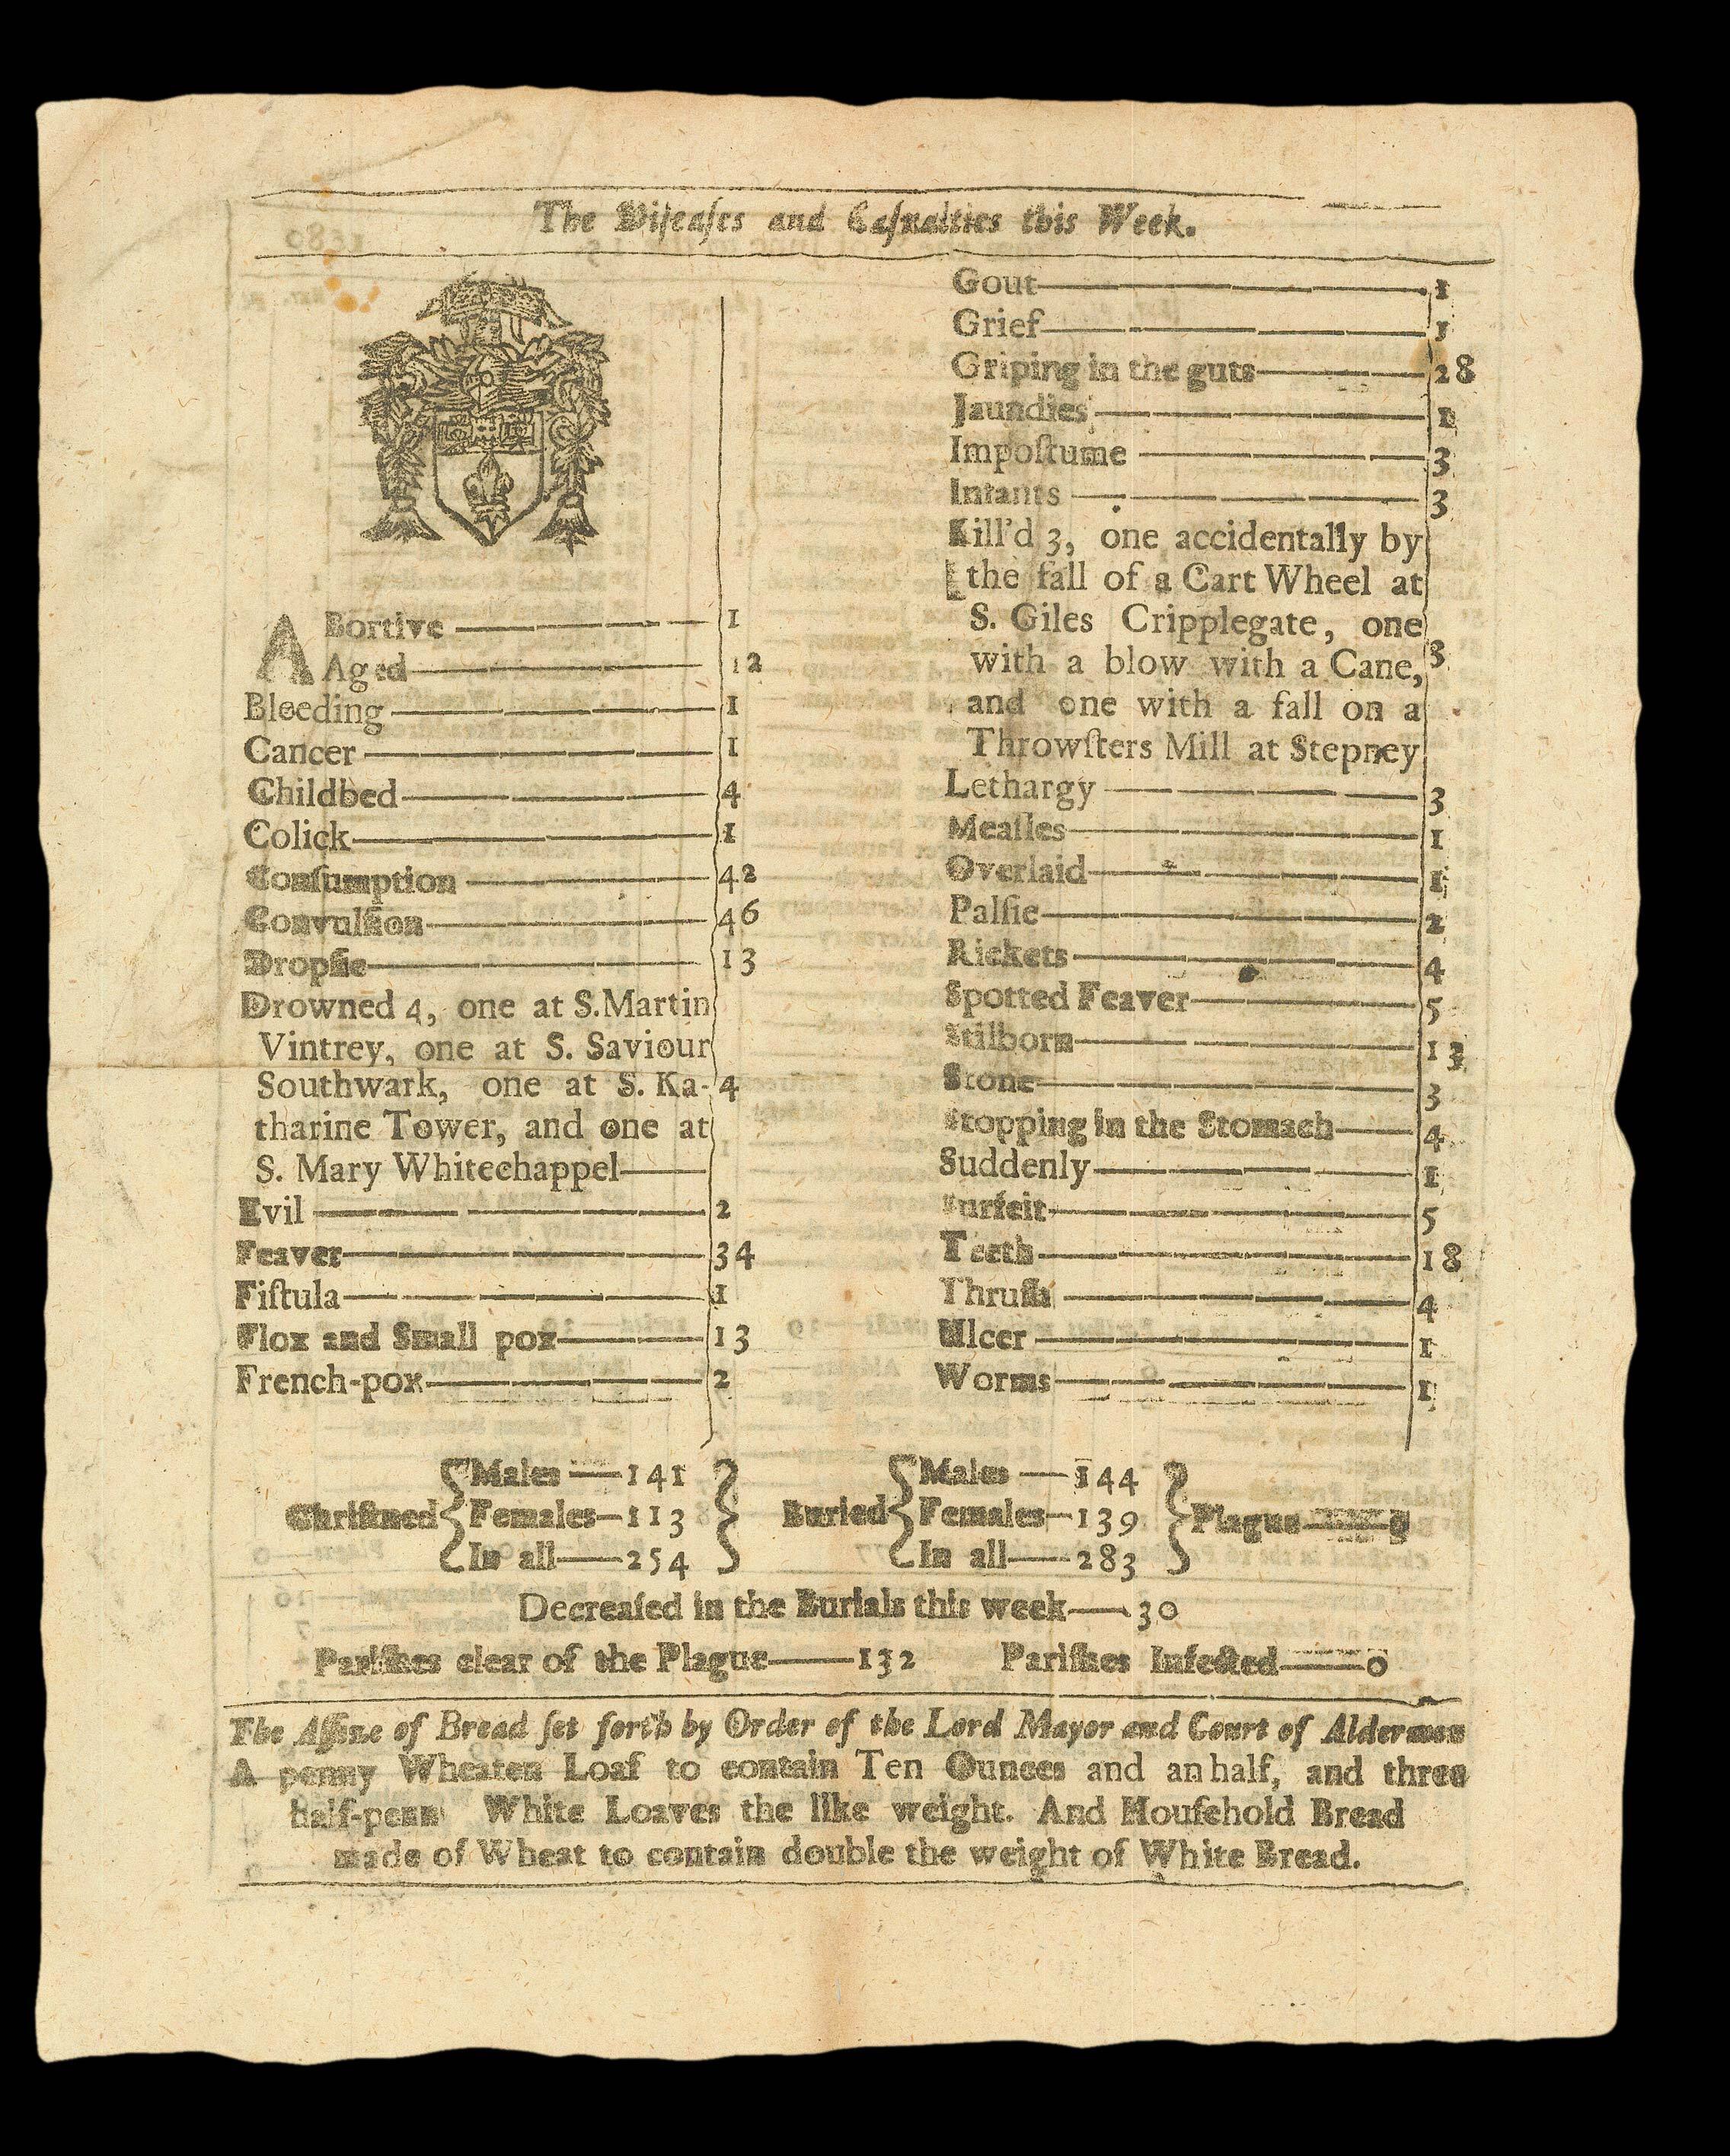 The Diſeaſes and Caſualties this Week.
ABortive — 1
Aged — 12
Bleeding — 1
Cancer — 1
Childbed — 4
Colick — 1
Conſumption — 42
Convulſion — 46
Dropſie — 13
Drowned 4, one at S.Martin
Vintrey, one at S. Saviour
Southwark, one at S. Ka- 4
tharine Tower, and one at
S. Mary Whitechappel —
Evil — 2
Feaver — 34
Fiſtula — 1
Flox and Small pox — 13
French-pox — 2
Gout — 1
Grief — 1
Griping in the guts — 28
Jaundies — 1
Impoſtume — 3
Infants — 3
Kill'd 3, one accidentally by
the fall of a Cart Wheel at
S. Giles Cripplegate, one
with a blow with a Cane, 3
and one with a fall on a
Throwſters Mill at Stepney
Lethargy — 3
Meaſles — 1
Overlaid — 1
Palſie — 2
Rickets — 4
Spotted Feaver — 5
Stilborn — 13
Stone — 3
Stopping in the Stomach — 4
Suddenly — 1
Surfeit — 5
Teeth — 18
Thruſh — 4
Ulcer — 1
Worms — 1
Males — 141 Males — 144
Chriſtned Females — 113 Buried Females — 139 Plague — 0
In all — 254 In all — 283
Decreaſed in the Burials this week — 30
Pariſhes clear of the Plague — 132 Pariſhes Infected — 0
The Aſſize of Bread ſet forth by Order of the Lord Mayor and Court of Aldermen
A penny Wheaten Loaf to contain Ten Ounces and an half, and three
half-penn White Loaves the like weight. And Houſehold Bread
made of Wheat to contain double the weight of White Bread.